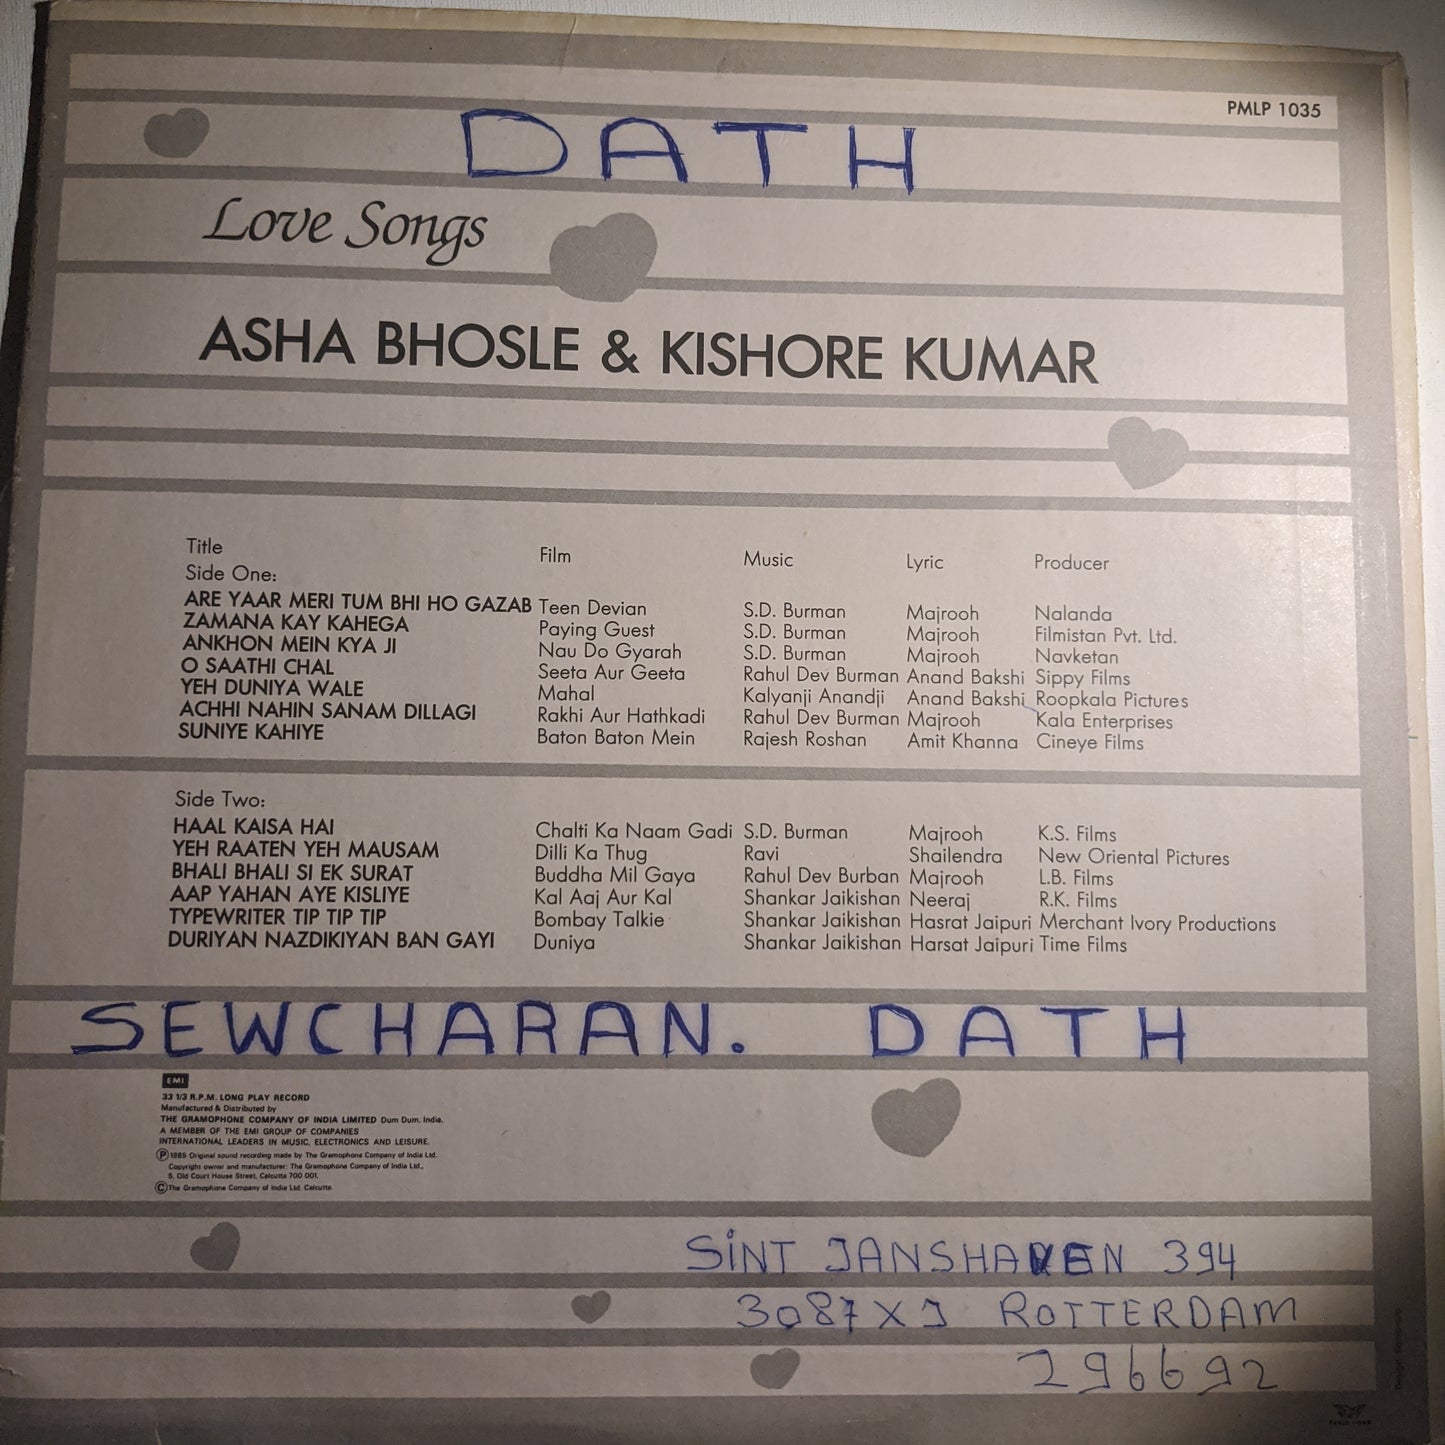 PMLP 1035
DATH
Love Songs
ASHA BHOSLE & KISHORE KUMAR
Title Film Music Lyric Producer
Side One:
ARE YAAR MERI TUM BHI HO GAZAB Teen Devian S.D. Burman Majrooh Nalanda
ZAMANA KAY KAHEGA Paying Guest S.D. Burman Majrooh Filmistan Pvt. Ltd.
ANKHON MEIN KYA JI Nau Do Gyarah S.D. Burman Majrooh Navketan
O SAATHI CHAL Seeta Aur Geeta Rahul Dev Burman Anand Bakshi Sippy Films
YEH DUNIYA WALE Mahal Kalyanji Anandji Anand Bakshi Roopkala Pictures
ACHHI NAHIN SANAM DILLAGI Rakhi Aur Hathkadi Rahul Dev Burman Majrooh Kala Enterprises
SUNIYE KAHIYE Baton Baton Mein Rajesh Roshan Amit Khanna Cineye Films
Side Two:
HAAL KAISA HAI Chalti Ka Naam Gadi S.D. Burman Majrooh K.S. Films
YEH RAATEN YEH MAUSAM Dilli Ka Thug Ravi Shailendra New Oriental Pictures
BHALI BHALI SI EK SURAT Buddha Mil Gaya Rahul Dev Burban Majrooh L.B. Films
AAP YAHAN AYE KISLIYE Kal Aaj Aur Kal Shankar Jaikishan Neeraj R.K. Films
TYPEWRITER TIP TIP TIP Bombay Talkie Shankar Jaikishan Hasrat Jaipuri Merchant Ivory Productions
DURIYAN NAZDIKIYAN BAN GAYI Duniya Shankar Jaikishan Harsat Jaipuri Time Films
SEWCHARAN. DATH
EMI
33 1/3 R.P.M. LONG PLAY RECORD
Manufactured & Distributed by
THE GRAMOPHONE COMPANY OF INDIA LIMITED Dum Dum, India.
A MEMBER OF THE EMI GROUP OF COMPANIES
INTERNATIONAL LEADERS IN MUSIC, ELECTRONICS AND LEISURE.
Ⓟ 1985 Original sound recording made by The Gramophone Company of India Ltd.
Copyright owner and manufacturer: The Gramophone Company of India Ltd.,
5, Old Court House Street, Calcutta 700 001.
© The Gramophone Company of India Ltd. Calcutta.
SINT JANSHAVEN 394
3087XJ ROTTERDAM
296692